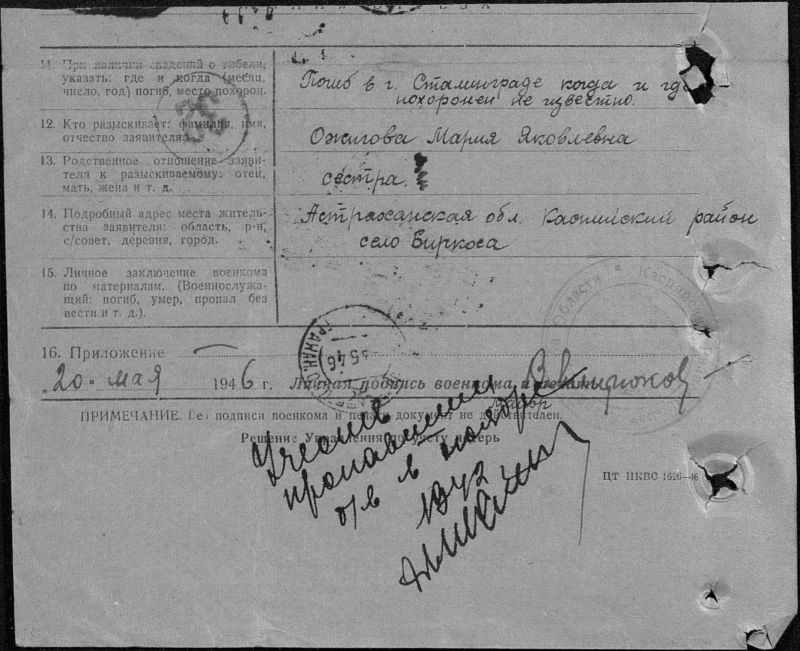 11. При наличии сведений о гибели, указать: где и когда (месяц, число, год) погиб, место похорон.
Погиб в г. Сталинграде когда и где
похоронен не известно.
12. Кто разыскивает: фамилия, имя, отчество заявителя.
Ожигова Мария Яковлевна
13. Родственное отношение заявителя к разыскиваемому: отец, мать, жена и т. д.
сестра.
14. Подробный адрес места жительства заявителя: область, р-н, с/совет, деревня, город.
Астраханская обл. Каспийский район
село Бирюоса
15. Личное заключение военкома по материалам. (Военнослужащий: погиб, умер, пропал без вести и т. д.).
16. Приложение —
"20" мая 1946 г. Личная подпись военкома и печать
майор
ПРИМЕЧАНИЕ. Без подписи военкома и печати документ не действителен.
Решение Управления по учету потерь
Учесть
пропавшим
б/в в ноябре
1942
ЦТ НКВС 1626—46